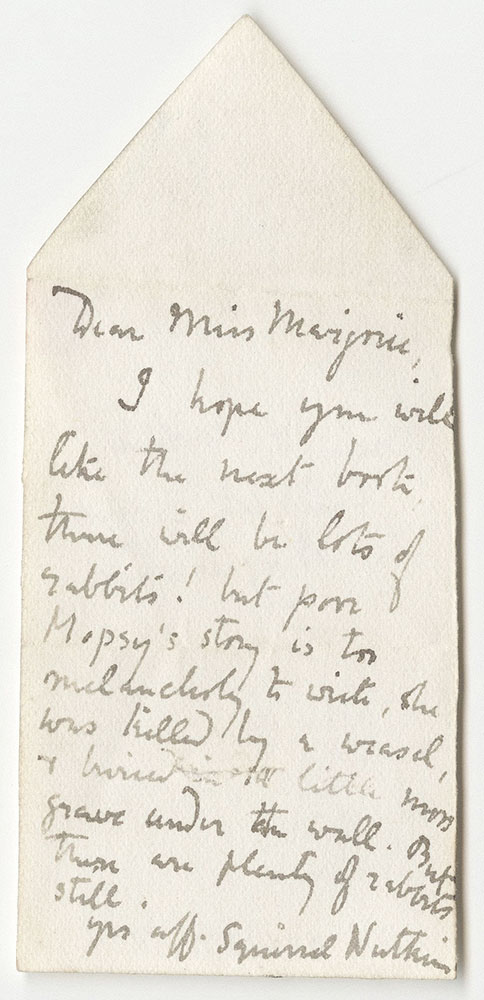 Dear Miss Marjorie,
I hope you will
like the next book,
there will be lots of
rabbits! but poor
Mopsy's story is too
melancholy to write, she
was killed by a weasel,
& buried in a little moss
grave under the wall. But
there are plenty of rabbits
still.
yrs aff. Squirrel Nutkin